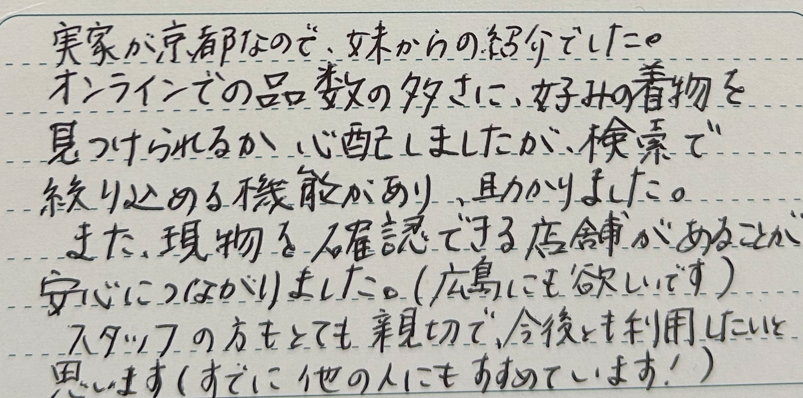 実家が京都なので、妹からの紹介でした。
オンラインでの品数の多さに、好みの着物を
見つけられるか心配しましたが、検索で
絞り込める機能があり、助かりました。
また、現物を確認できる店舗があることが
安心につながりました。(広島にも欲しいです)
スタッフの方もとても親切で、今後とも利用したいと
思います(すでに他の人にもすすめています!)